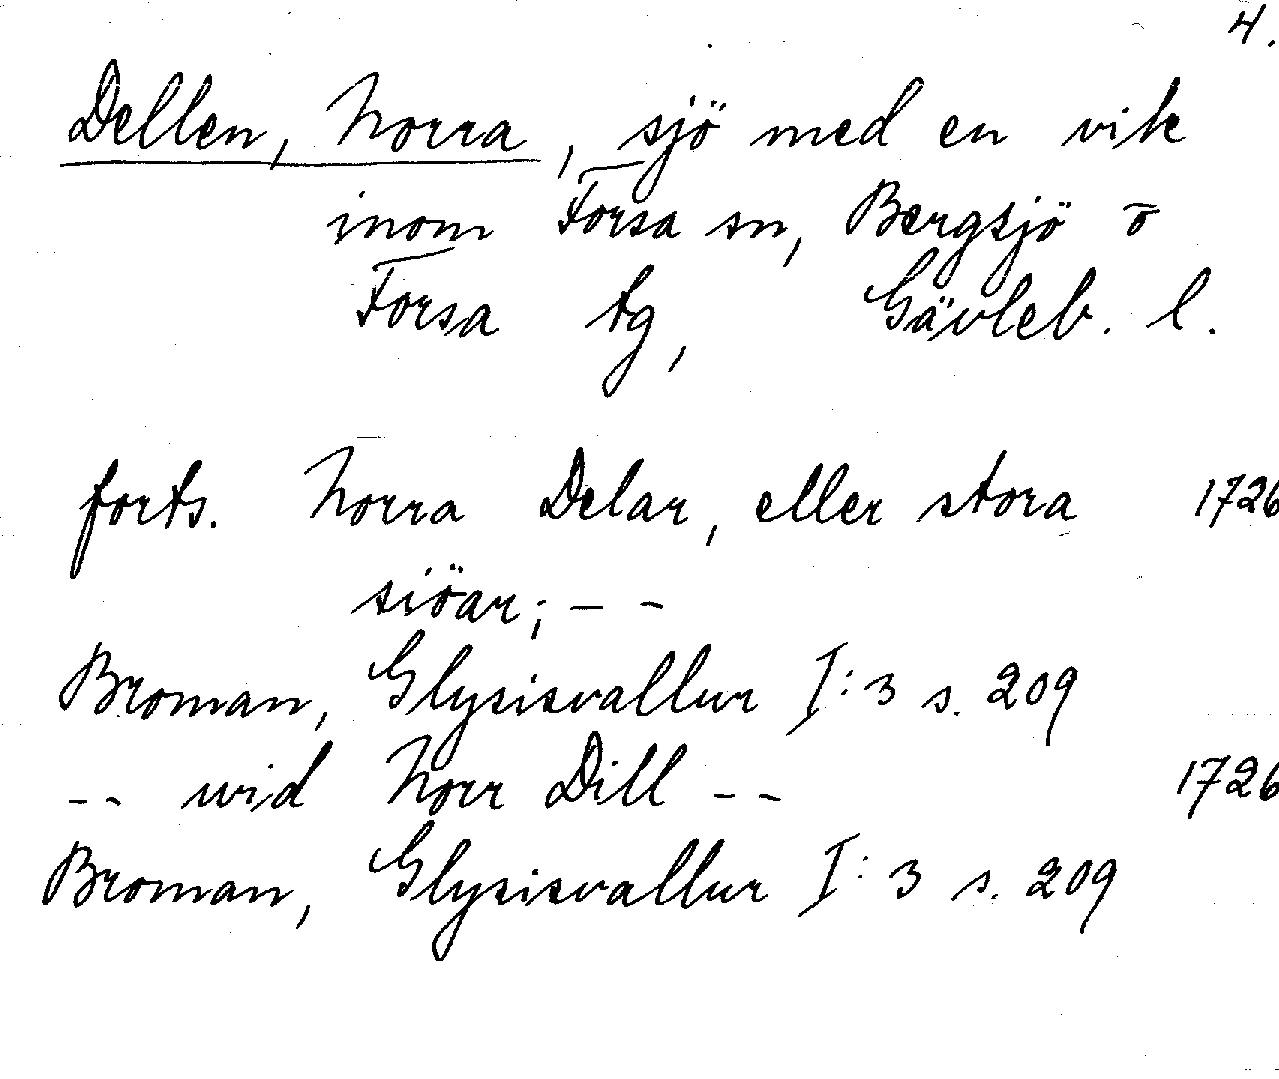 4.
Dellen, Norra, sjö med en vik
inom Forsa sn, Bergsjö o
Forsa tg, Gävleb. l.
forts. Norra Delar, eller stora 1726
siöar; - -
Broman, Glysisvallur I:3 s. 209
-- wid Norr Dill -- 1726
Broman, Glysisvallur I:3 s. 209